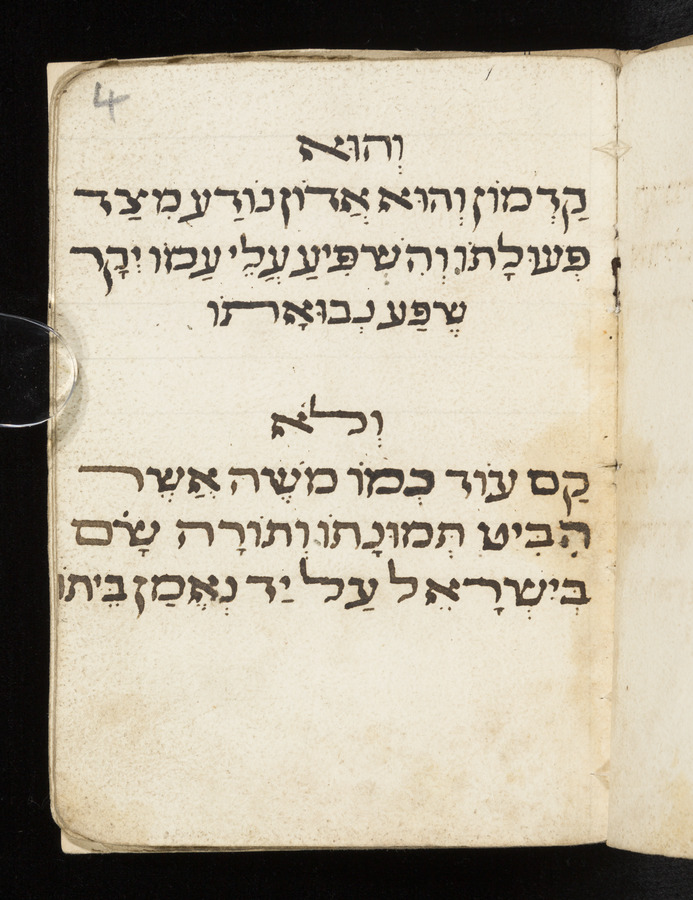 4
וְהוּא
קַדְמוֹן וְהוּא אֲדוֹן נוֹדַע מִצַד
פְּעוּלָתוֹ וְהִשְׁפִּיעַ עֲלֵי עַמוֹ יְקָר
שֶׁפַּע נְבוּאָתוֹ
וְלֹא
קַם עוֹד כְּמוֹ מֹשֶׁה אֲשֶׁר
הִבִּיט תְּמוּנָתוֹ וְתוֹרָה שָׂם
בְּיִשְׂרָאֵל עַל יַד נְאֱמַן בֵּיתוֹ